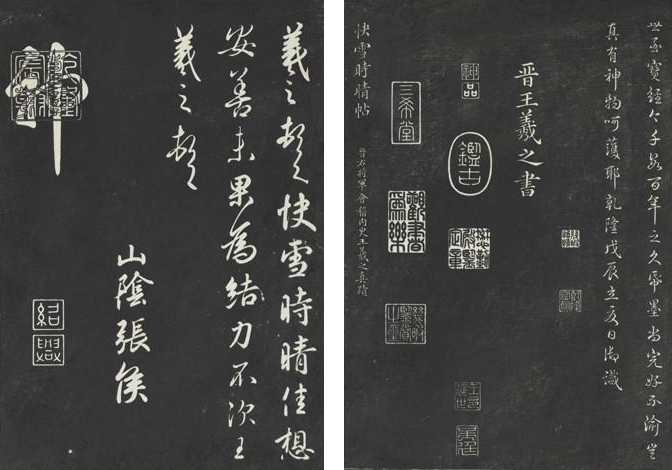 世至寶經今千數百年之久帋墨尚完好不渝豈
真有神物呵護耶乾隆戊辰立夏日御識
晉王羲之書
神品
鑑古
三希堂
觀書為樂
快雪時晴帖
晉右將軍會稽內史王羲之真蹟
羲之頓首快雪時晴佳想
安善未果為結力不次王
羲之頓首
山陰張侯
神
紹興